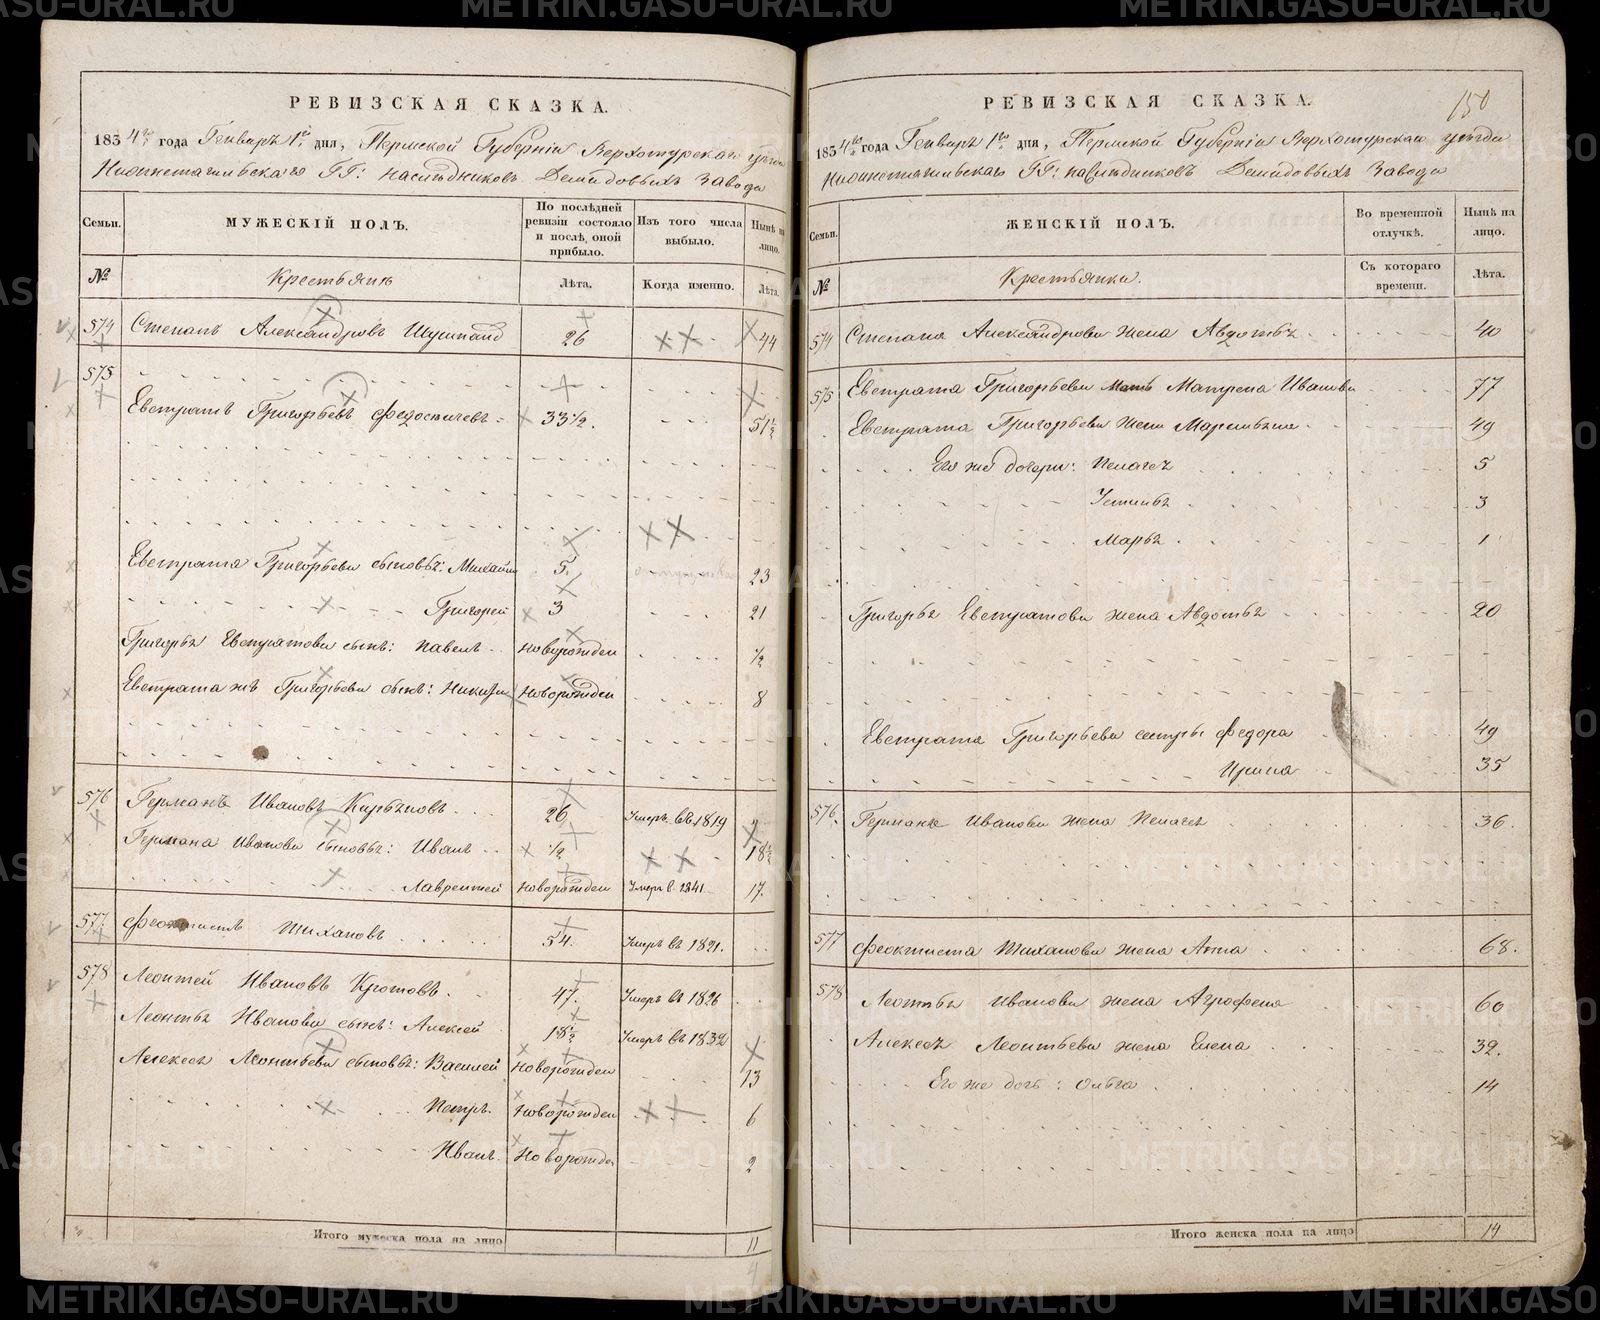 РЕВИЗСКАЯ СКАЗКА.
1834го года Генваря 1го дня, Пермской Губернiи Верхотурскаго уѣзда
Нижнетагильскаго ГГ: наслѣдниковъ Демидовыхъ Завода
Семьи. МУЖЕСКIЙ ПОЛЪ. По послѣдней ревизiи состояло и послѣ оной прибыло. Изъ того числа выбыло. Нынѣ на лицо.
№ Крестьянъ Лѣта. Когда именно. Лѣта.
574 Степанъ Александровъ 26 44
575
Евстратъ Григорьевъ Федосѣичевъ 33 1/2. 51 1/2
Евстрата Григорьева сыновья: Михайло 5. 23
Григорей 3 21
Григорья Евстратова сынъ: Павелъ новорожден 1/2
Евстрата жъ Григорьева сынъ: новорожден 8
576 Германъ Ивановъ 26 Умеръ въ 1819
Германа Иванова сыновья: Иванъ 1/2 18 1/2
Лаврентей новорожден Умеръ в. 1841 17.
577 Феоктистъ Тихановъ 54. Умеръ въ 1821.
578 Леонтей Ивановъ Кротовъ 47. Умеръ въ 1826
Леонтья Иванова сынъ: Алексей 18 1/2 Умеръ въ 1832
Алексея Леонтьева сыновья: Василей новорожден 13
Петръ. новорожден 6
Иванъ. новорожден 2
Итого мужеска пола на лицо 11
150
РЕВИЗСКАЯ СКАЗКА.
1834го года Генваря 1го дня, Пермской Губернiи Верхотурскаго уѣзда
Нижнетагильскаго ГГ: наслѣдниковъ Демидовыхъ Завода
Семьи. ЖЕНСКIЙ ПОЛЪ. Во временной отлучкѣ. Нынѣ на лицо.
№ Крестьянки. Съ котораго времени. Лѣта.
574 Степана Александрова жена Авдотья 40
575 Евстрата Григорьева Мать Матрена Иванова 77
Евстрата Григорьева жена 49
Его же дочери: Пелагея 5
Устинья 3
Марья 1
Григорья Евстратова жена Авдотья 20
Евстрата Григорьева сестры Федора 49
Ирина 35
576. Германа Иванова жена Пелагея 36.
577 Феоктиста Тиханова жена Анна 68.
578 Леонтья Иванова жена Агрофена 60
Алексея Леонтьева жена Елена 39.
Его же дочь: Ольга 14
Итого женска пола на лицо 14
METRIKI.GASO-URAL.RU